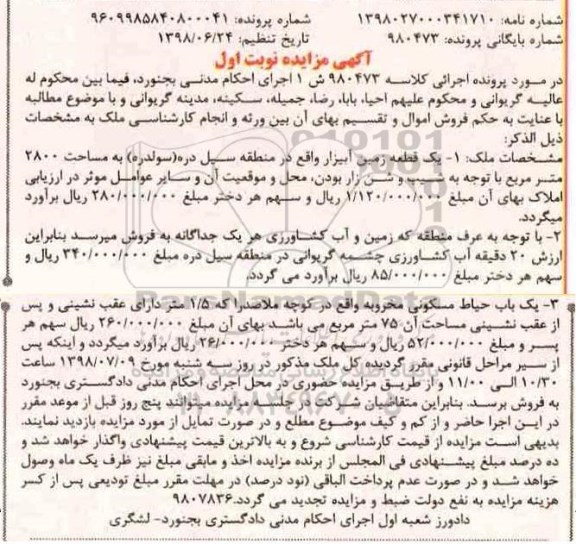 شماره نامه: ۱۳۹۸۰۲۷۰۰۰۳۴۱۷۱۰ شماره پرونده: ۹۶۰۹۹۸۵۸۴۰۸۰۰۰۴۱
شماره بایگانی پرونده: ۹۸۰۴۷۳ تاریخ تنظیم: ۱۳۹۸/۰۶/۲۴
آگهی مزایده نوبت اول
در مورد پرونده اجرائی کلاسه ۹۸۰۴۷۳ ش ۱ اجرای احکام مدنی بجنورد، فیما بین محکوم له
عالیه گریوانی و محکوم علیهم احیا، بابا، رضا، جمیله، سکینه، مدینه گریوانی و با موضوع مطالبه
با عنایت به حکم فروش اموال و تقسیم بهای آن بین ورثه و انجام کارشناسی ملک به مشخصات
ذیل الذکر:
مشخصات ملک: ۱- یک قطعه زمین آبیزار واقع در منطقه سیل دره(سولدره) به مساحت ۲۸۰۰
متر مربع با توجه به شیب و شن زار بودن، محل و موقعیت آن و سایر عوامل موثر در ارزیابی
املاک بهای آن مبلغ ۱/۱۲۰/۰۰۰/۰۰۰ ریال و سهم هر دختر مبلغ ۲۸۰/۰۰۰/۰۰۰ ریال برآورد
میگردد.
۲- با توجه به عرف منطقه که زمین و آب کشاورزی هر یک جداگانه به فروش میرسد بنابراین
ارزش ۲۰ دقیقه آب کشاورزی چشمه گریوانی در منطقه سیل دره مبلغ ۳۴۰/۰۰۰/۰۰۰ ریال و
سهم هر دختر مبلغ ۸۵/۰۰۰/۰۰۰ ریال برآورد می گردد.
۳- یک باب حیاط مسکونی مخروبه واقع در کوچه ملاصدرا که ۱/۵ متر دارای عقب نشینی و پس
از عقب نشینی مساحت آن ۷۵ متر مربع می باشد بهای آن مبلغ ۲۶۰/۰۰۰/۰۰۰ ریال سهم هر
پسر و مبلغ ۵۲/۰۰۰/۰۰۰ ریال و سهم هر دختر ۲۶/۰۰۰/۰۰۰ ریال برآورد میگردد و اینکه پس
از سیر مراحل قانونی مقرر گردیده کل ملک مذکور در روز سه شنبه مورخ ۱۳۹۸/۰۷/۰۹ ساعت
۱۰/۳۰ الی ۱۱/۰۰ و از طریق مزایده حضوری در محل اجرای احکام مدنی دادگستری بجنورد
به فروش برسد. بنابراین متقاضیان شرکت در جلسه مزایده میتوانند پنج روز قبل از موعد مقرر
در این اجرا حاضر و از کم و کیف موضوع مطلع و در صورت تمایل از مورد مزایده بازدید نمایند.
بدیهی است مزایده از قیمت کارشناسی شروع و به بالاترین قیمت پیشنهادی واگذار خواهد شد و
ده درصد مبلغ پیشنهادی فی المجلس از برنده مزایده اخذ و مابقی مبلغ نیز ظرف یک ماه وصول
خواهد شد و در صورت عدم پرداخت الباقی (نود درصد) در مهلت مقرر مبلغ تودیعی پس از کسر
هزینه مزایده به نفع دولت ضبط و مزایده تجدید می گردد.۹۸۰۷۸۳۶
دادورز شعبه اول اجرای احکام مدنی دادگستری بجنورد- لشگری